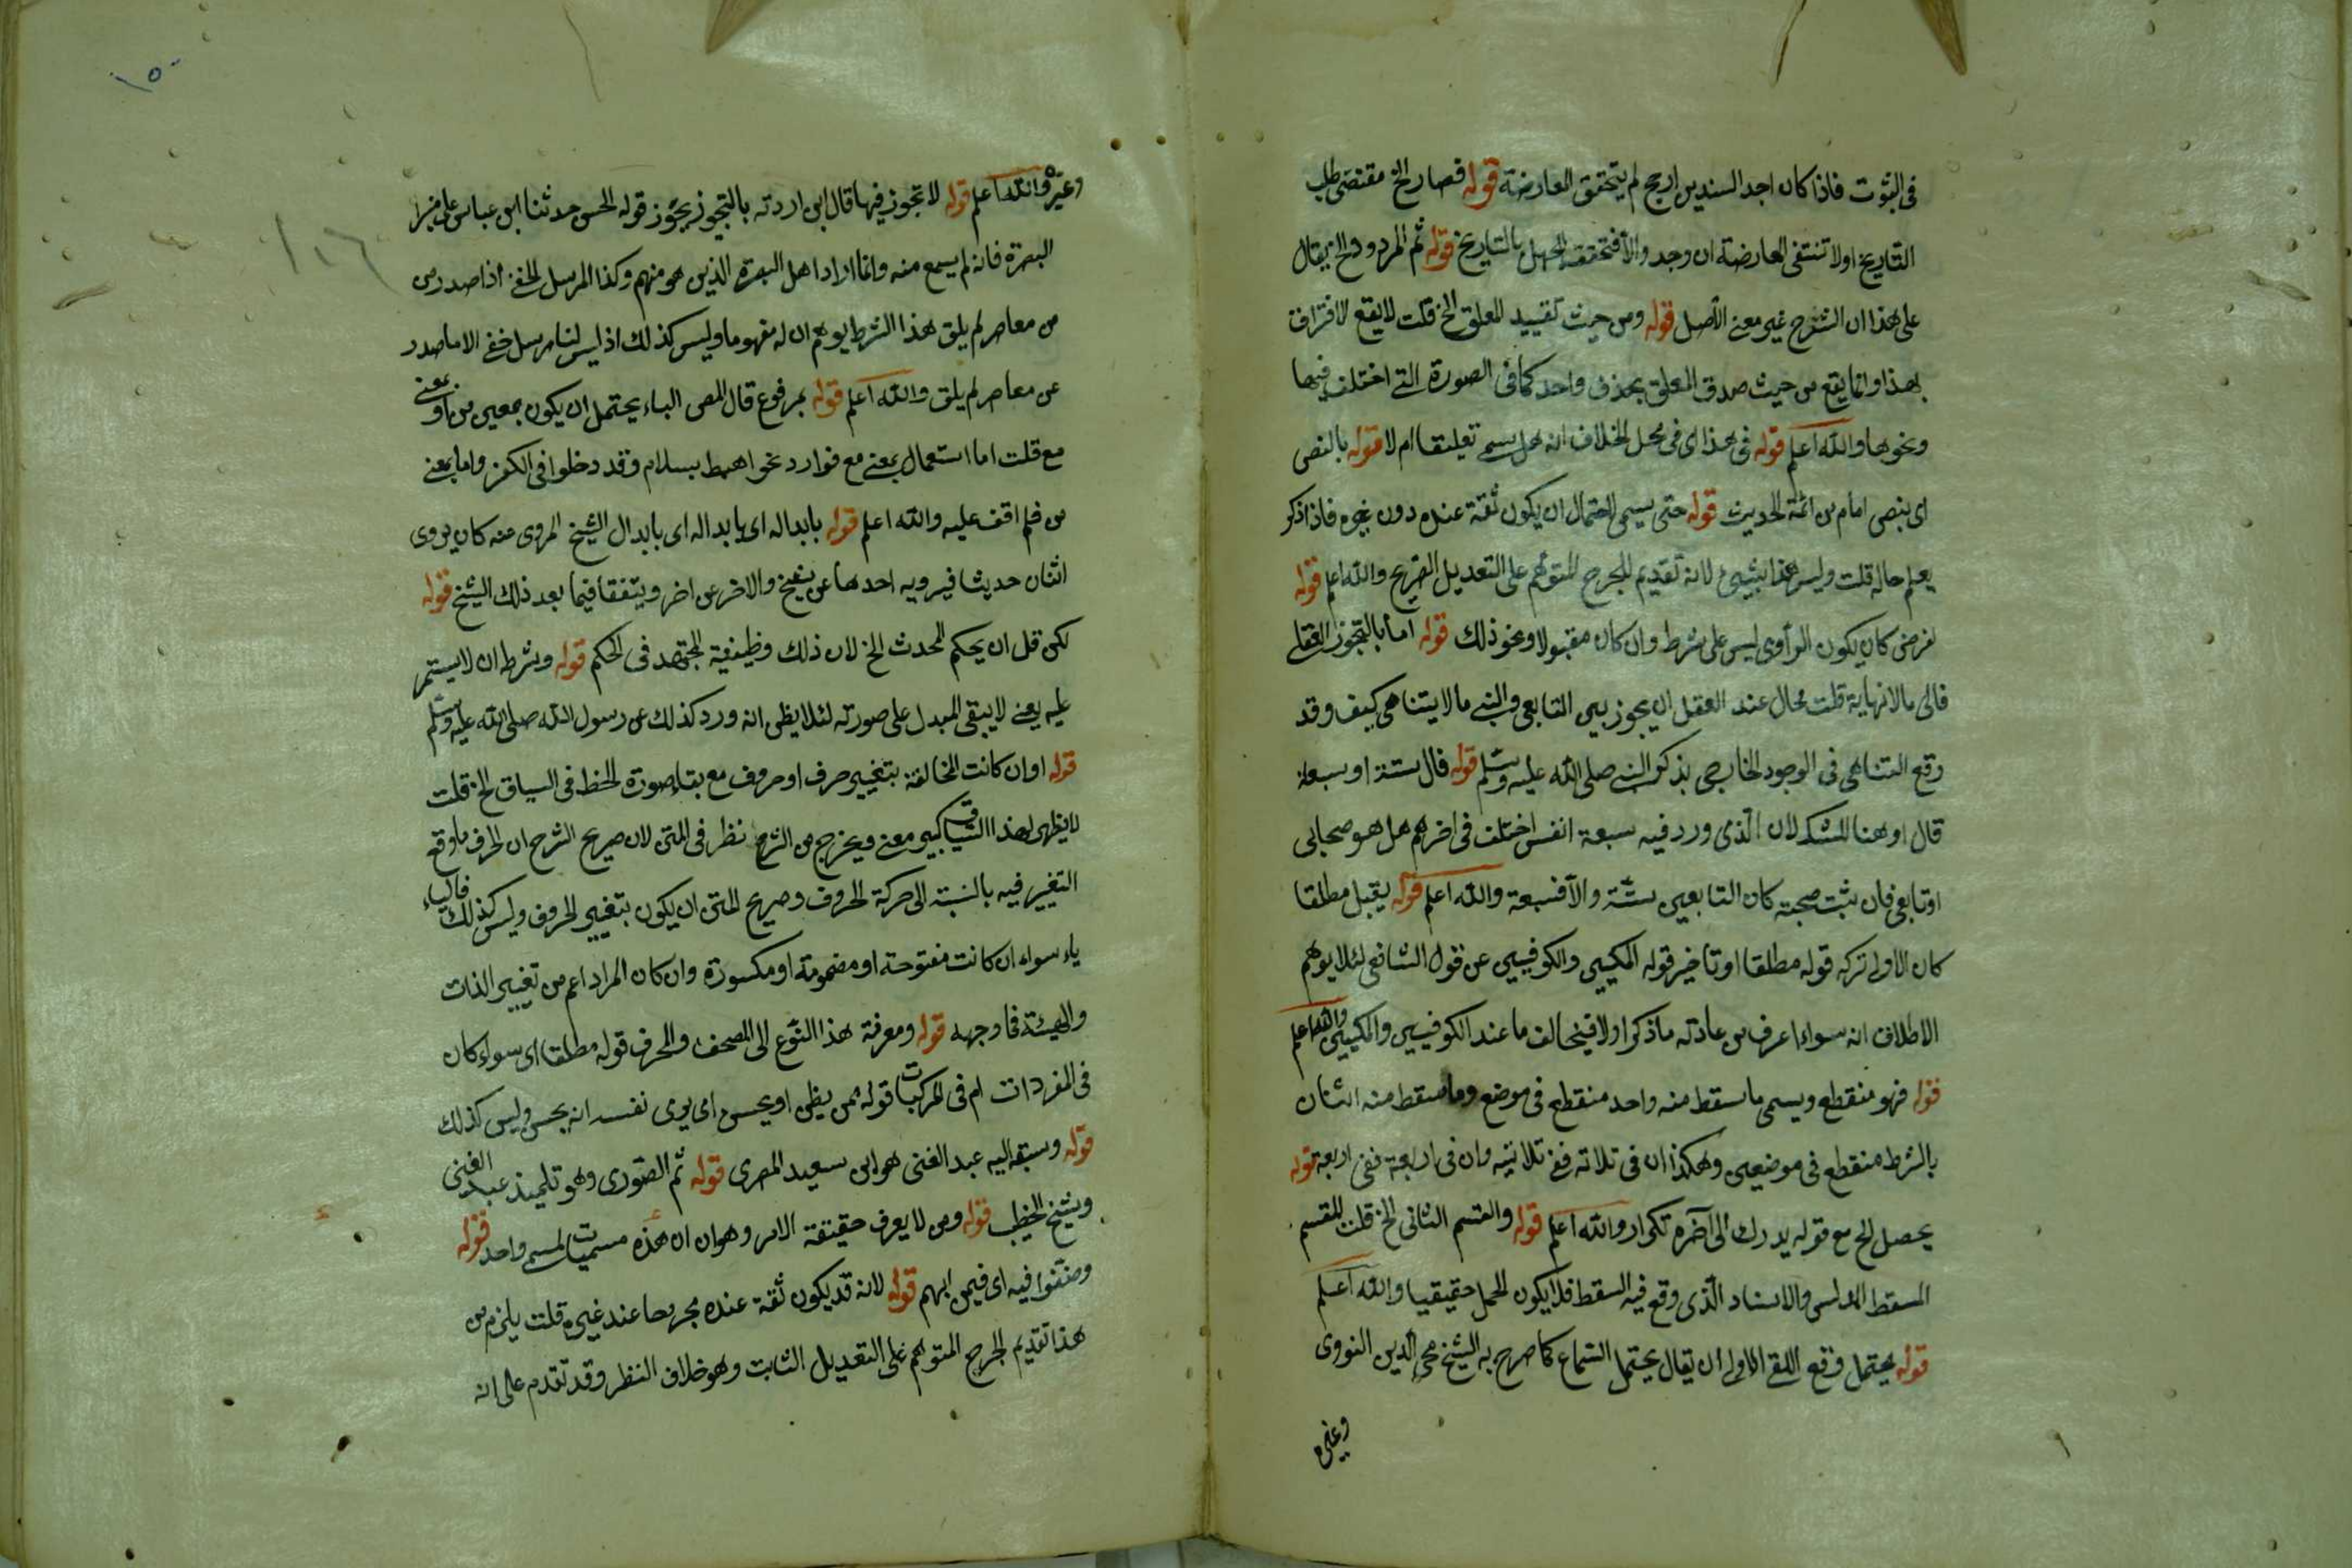 فى الثبوت فاذا كان احد السندين ارجح لم يتحقق المعارضة قوله فصار الخ مقتضى طلب
التاريخ اولا تنتفى المعارضة ان وجد والا فتحققه الجهل بالتاريخ قوله ثم المردود الخ يقال
على هذا ان الشرح غير معنى الأصل قوله ومن حيث تقييد المعلق الخ قلت لا يقع الافتراق
بهذا وانما يقع من حيث صدق المعلق بحذف واحد كما فى الصورة التى اختلف فيها
ونحوها والله اعلم قوله فى هذا اى فى محل الخلاف انه هل يسمى تعليقا ام لا قوله بالنص
اى بنص امام من ائمة الحديث قوله حتى يسمى لاحتمال ان يكون ثقة عنده دون غيره فاذا ذكر
يعلم حاله قلت وليس هذا بشيئ لانه تقديم للجرح المتوهم على التعديل الصريح والله اعلم قوله
لغرض كان يكون الراوى ليس على شرط وان كان مقبولا ونحو ذلك قوله اما بالتجوز العقلى
فالى مالا نهاية قلت محال عند العقل ان يجوز بين التابعى والنبى مالا يتناهى كيف وقد
وقع التناهى فى الوجود الخارجى بذكر النبى صلى الله عليه وسلم قوله فالى ستة او سبعة
قال او هنا للشك لان الذى ورد فيه سبعة انفس اختلف فى اخرهم هل هو صحابى
او تابعى فان ثبت صحبته كان التابعين ستة والا فسبعة والله اعلم قوله يقبل مطلقا
كان الاولى تركه قوله مطلقا او تاخير قوله المكيين والكوفيين عن قول الشافعى لئلا يوهم
الاطلاق انه سواء اعرف من عادته ما ذكر اولا فيخالف ما عند الكوفيين والمكيين والله اعلم
قوله فهو منقطع ويسمى ما سقط منه واحد منقطع فى موضع وما سقط منه اثنان
بالشرط منقطع فى موضعين وهكذا ان فى ثلاثة ففى ثلاثة وان فى اربعة ففى اربعة قوله
يحصل الخ مع قوله يدرك الى آخره تكرار والله اعلم قوله والقسم الثانى الخ قلت للقسم
السقط المدلس والاسناد الذى وقع فيه السقط فلا يكون الحمل حقيقيا والله اعلم
قوله يحتمل وقوع اللقى الاولى ان يقال يحتمل السماع كما صرح به الشيخ محى الدين النووى
وغيره
١٥٠
١١٦
وغيره والله اعلم قوله لا تجوز فيها قال ابن اردته بالتجوز يجوز قوله الحسن حدثنا ابن عباس على منبر
البصرة فانه لم يسمع منه وانما اراد اهل البصرة الذين هو منهم وكذا المرسل الخفى اذا صدر من
من معاصر لم يلق هذا الشرط يوهم ان له مفهوما وليس كذلك اذ ليس لنا مرسل خفى الا ما صدر
عن معاصر لم يلق والله اعلم قوله بمرفوع قال المص الباء يحتمل ان يكون بمعنى من او بمعنى
مع قلت اما استعمال بمعنى مع فوارد نحو اهبط بسلام وقد دخلوا فى الكفر واما بمعنى
من فلم اقف عليه والله اعلم قوله بابداله اى بابداله اى بابدال الشيخ المروى عنه كان يروى
اثنان حديثا فيرويه احدهما عن شيخ والاخر عن اخر ويتفقا فيما بعد ذلك الشيخ قوله
لكن قل ان يحكم المحدث الخ لان ذلك وظيفة المجتهد فى الحكم قوله وشرط ان لا يستمر
عليه يعنى لا يبقى المبدل على صورته لئلا يظن انه ورد كذلك عن رسول الله صلى الله عليه وسلم
قوله او ان كانت المخالفة بتغيير حرف او حروف مع بقاء صورة الخط فى السياق الخ قلت
لا يظهر لهذا السياق كبير معنى ويخرج من الشرح نظر فى المتن لان صريح الشرح ان الحرف ما وقع
التغيير فيه بالنسبة الى حركة الحروف وصريح المتن ان يكون بتغيير الحروف وليس كذلك فالياء
ياء سواء ان كانت مفتوحة او مضمومة او مكسورة وان كان المراد اعم من تغيير الذات
والهيئة فما وجهه قوله ومعرفة هذا النوع الى المصحف والحرف قوله مطلقا اى سواء كان
فى المفردات ام فى المركبات قوله ممن يظن او يحسن اى يرى نفسه انه يحسن وليس كذلك
قوله وسبقه اليه عبد الغنى هو ابن سعيد المصرى قوله ثم الصورى وهو تلميذ عبد الغنى
وشيخ الخطيب قوله ومن لا يعرف حقيقة الامر وهو ان ان هذه مسميات لمسمى واحد قوله
وصنفوا فيه اى فيمن ابهم قوله لانه قد يكون ثقة عنده مجروحا عند غيره قلت يلزم من
هذا تقديم الجرح المتوهم على التعديل الثابت وهو خلاف النظر وقد تقدم على انه